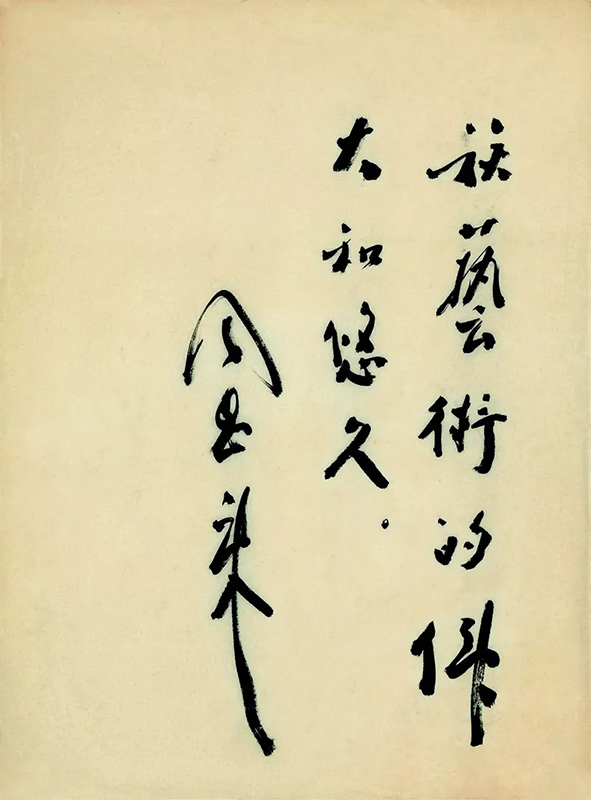 族藝術的偉
大和悠久。
周恩來